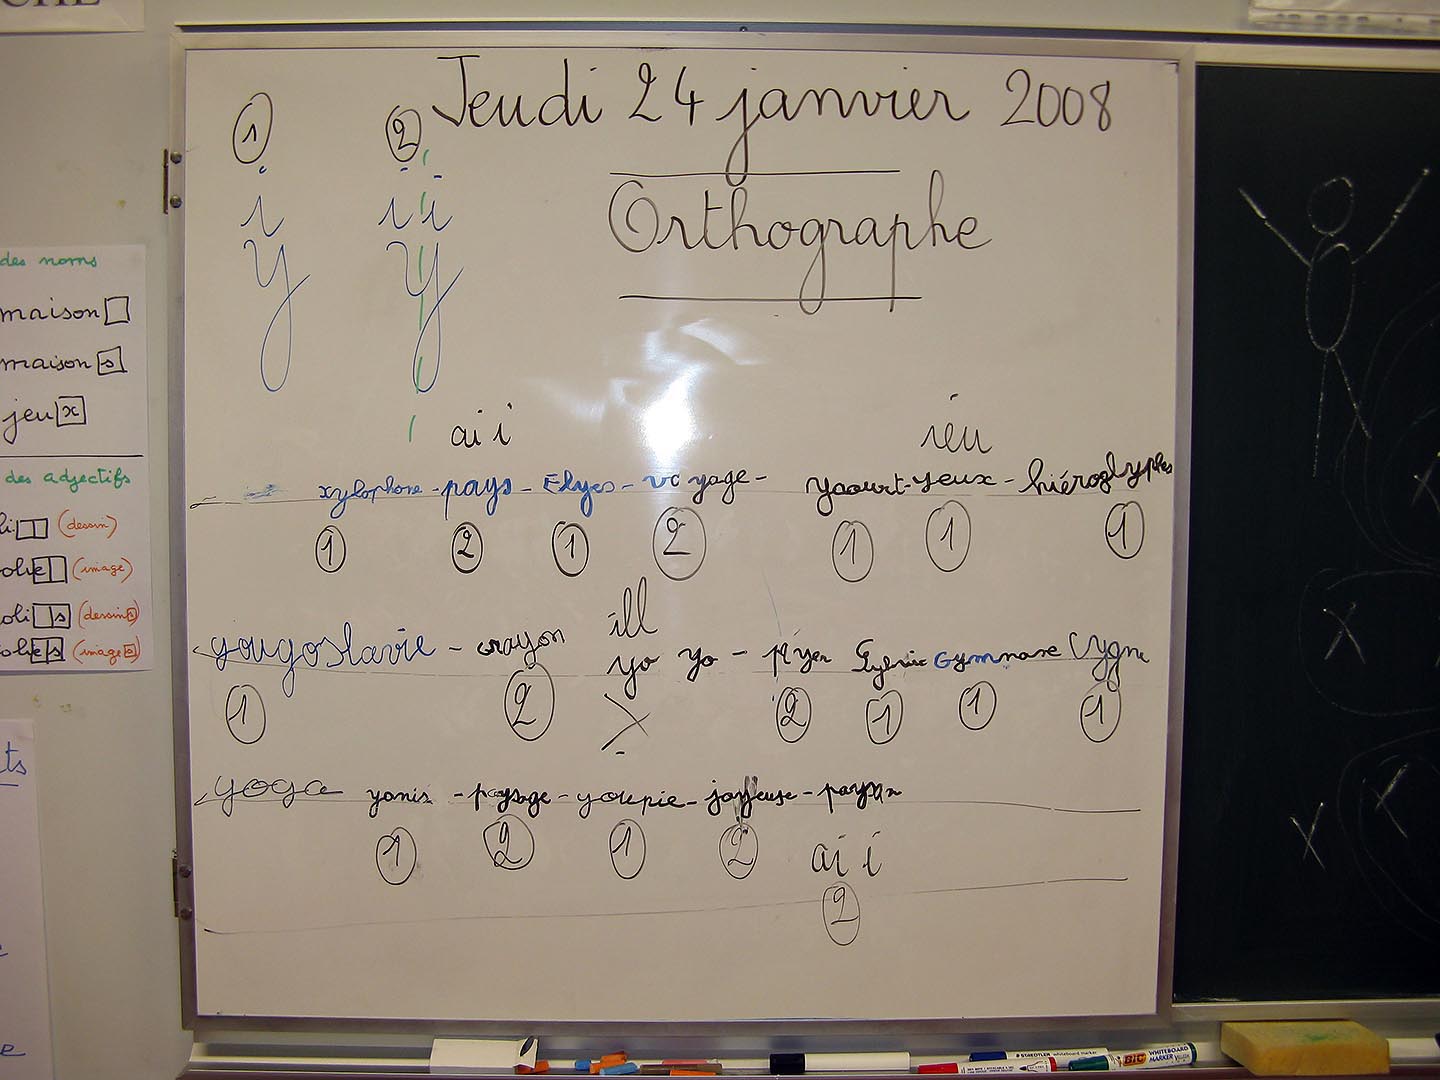 Jeudi 24 janvier 2008
① ②
i ii
y y
Orthographe
ai i ieu
xylophone - pays - Elyes - voyage - yaourt - yeux - hiéroglyphes
① ② ① ② ① ① ①
ill
yougoslavie - crayon yo yo - Gymnase Cygne
① ② ② ① ① ①
yoga yanis - paysage - youpie - joyeuse - paysan
① ② ① ②
ai i
②
des noms
maison
maison s
jeu x
des adjectifs
(dessin)
(image)
s (dessins)
s (images)
ts
e
STAEDTLER
BIC WHITEBOARD MARKER